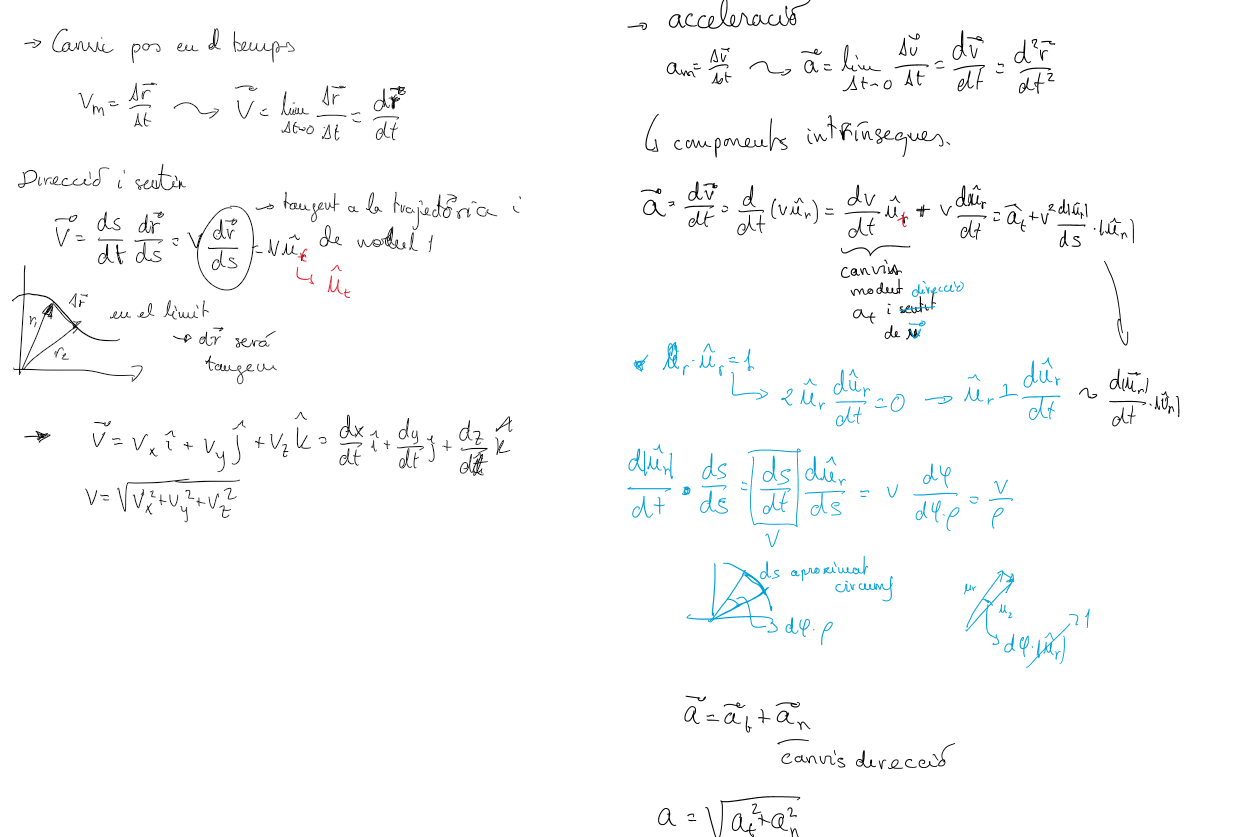 → Canvi pos en el temps
Vm = Δr⃗/Δt ⇝ V⃗ = lim Δt→0 Δr⃗/Δt = dr⃗/dt
Direcció i sentit
V⃗ = ds/dt dr⃗/ds = v dr⃗/ds = v û_t
→ tangent a la trajectòria i
de mòdul 1
↳ û_t
Δr⃗
r₁
r₂
en el límit
→ dr⃗ será
tangent
→ V⃗ = Vx î + Vy ĵ + Vz k̂ = dx/dt î + dy/dt ĵ + dz/dt k̂
V = √(Vx² + Vy² + Vz²)
→ acceleració
am = Δv⃗/Δt ⇝ a⃗ = lim Δt→0 Δv⃗/Δt = dv⃗/dt = d²r⃗/dt²
↳ components intrínseques.
a⃗ = dv⃗/dt = d/dt (v û_r) = dv/dt û_t + v dû_r/dt = a⃗_t + v² d|û_r|/ds · |û_n|
canvis
modul direcció
a_t i sentit
de v⃗
• û_r · û_r = 1
↳ 2 û_r dû_r/dt = 0 → û_r ⊥ dû_r/dt ~ d|u⃗_r|/dt · |û_n|
d|û_r|/dt · ds/ds = ds/dt dû_r/ds = v dφ/dφ·ρ = v/ρ
V
ds aproximat
circumf
dφ·ρ
μr
μ2
dφ·|û_r| 1
a⃗ = a⃗_t + a⃗_n
canvis direcció
a = √(a_t² + a_n²)